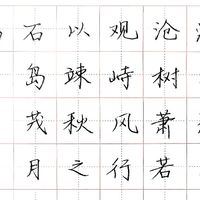 石以观沧
岛竦峙树
茂秋风萧
月之行若